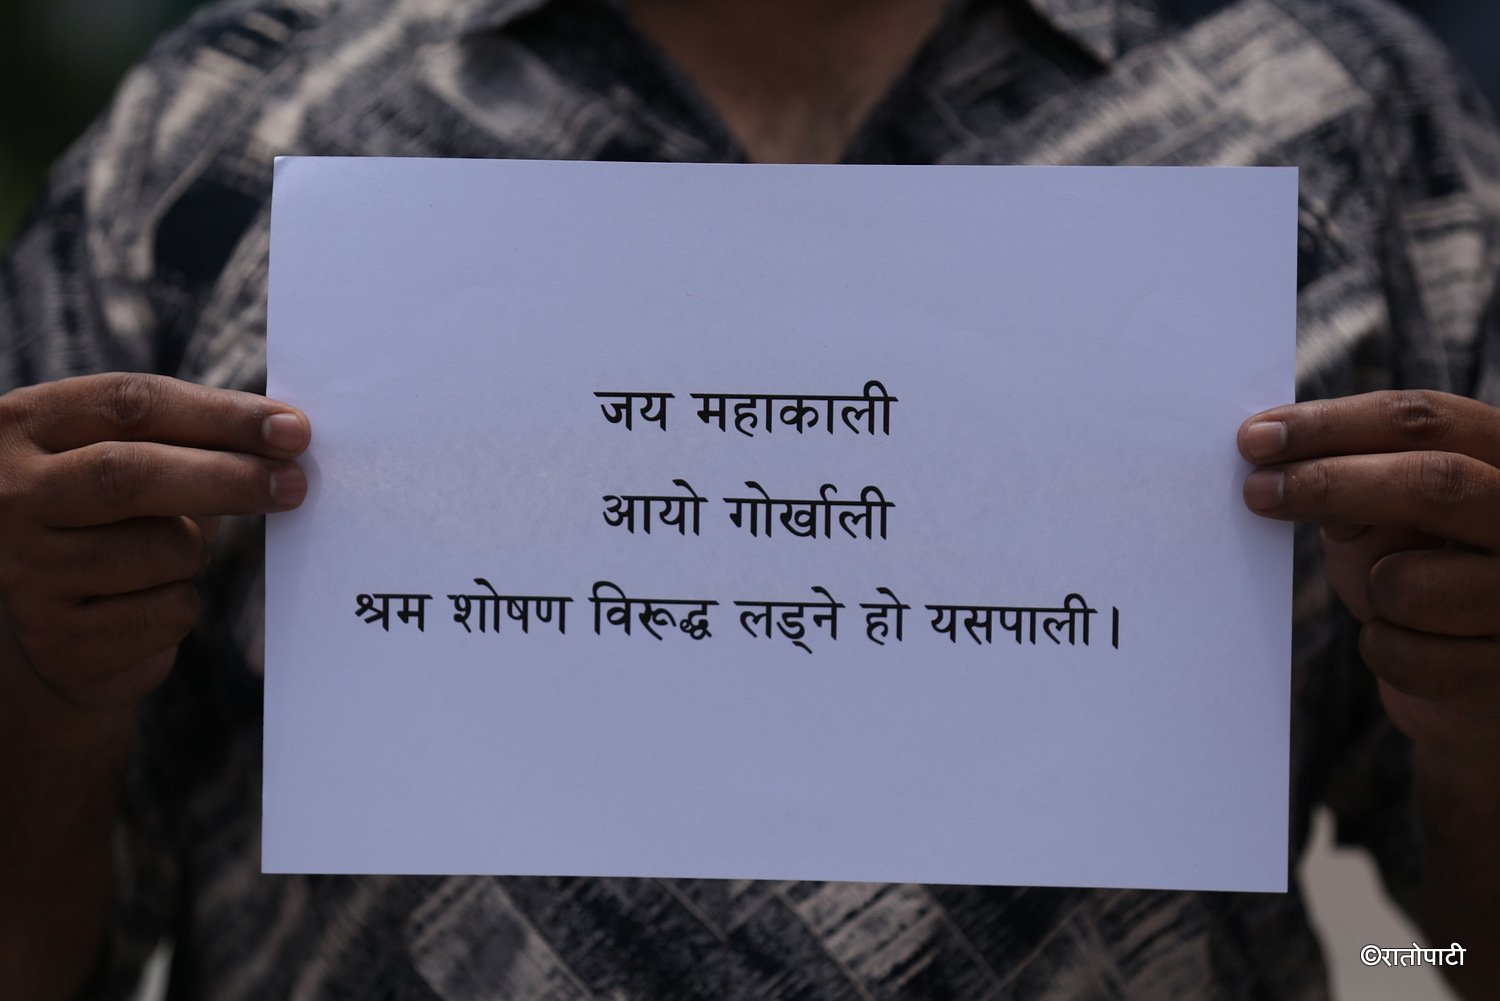 जय महाकाली
आयो गोर्खाली
श्रम शोषण विरूद्ध लड्ने हो यसपाली।
©रातोपाटी